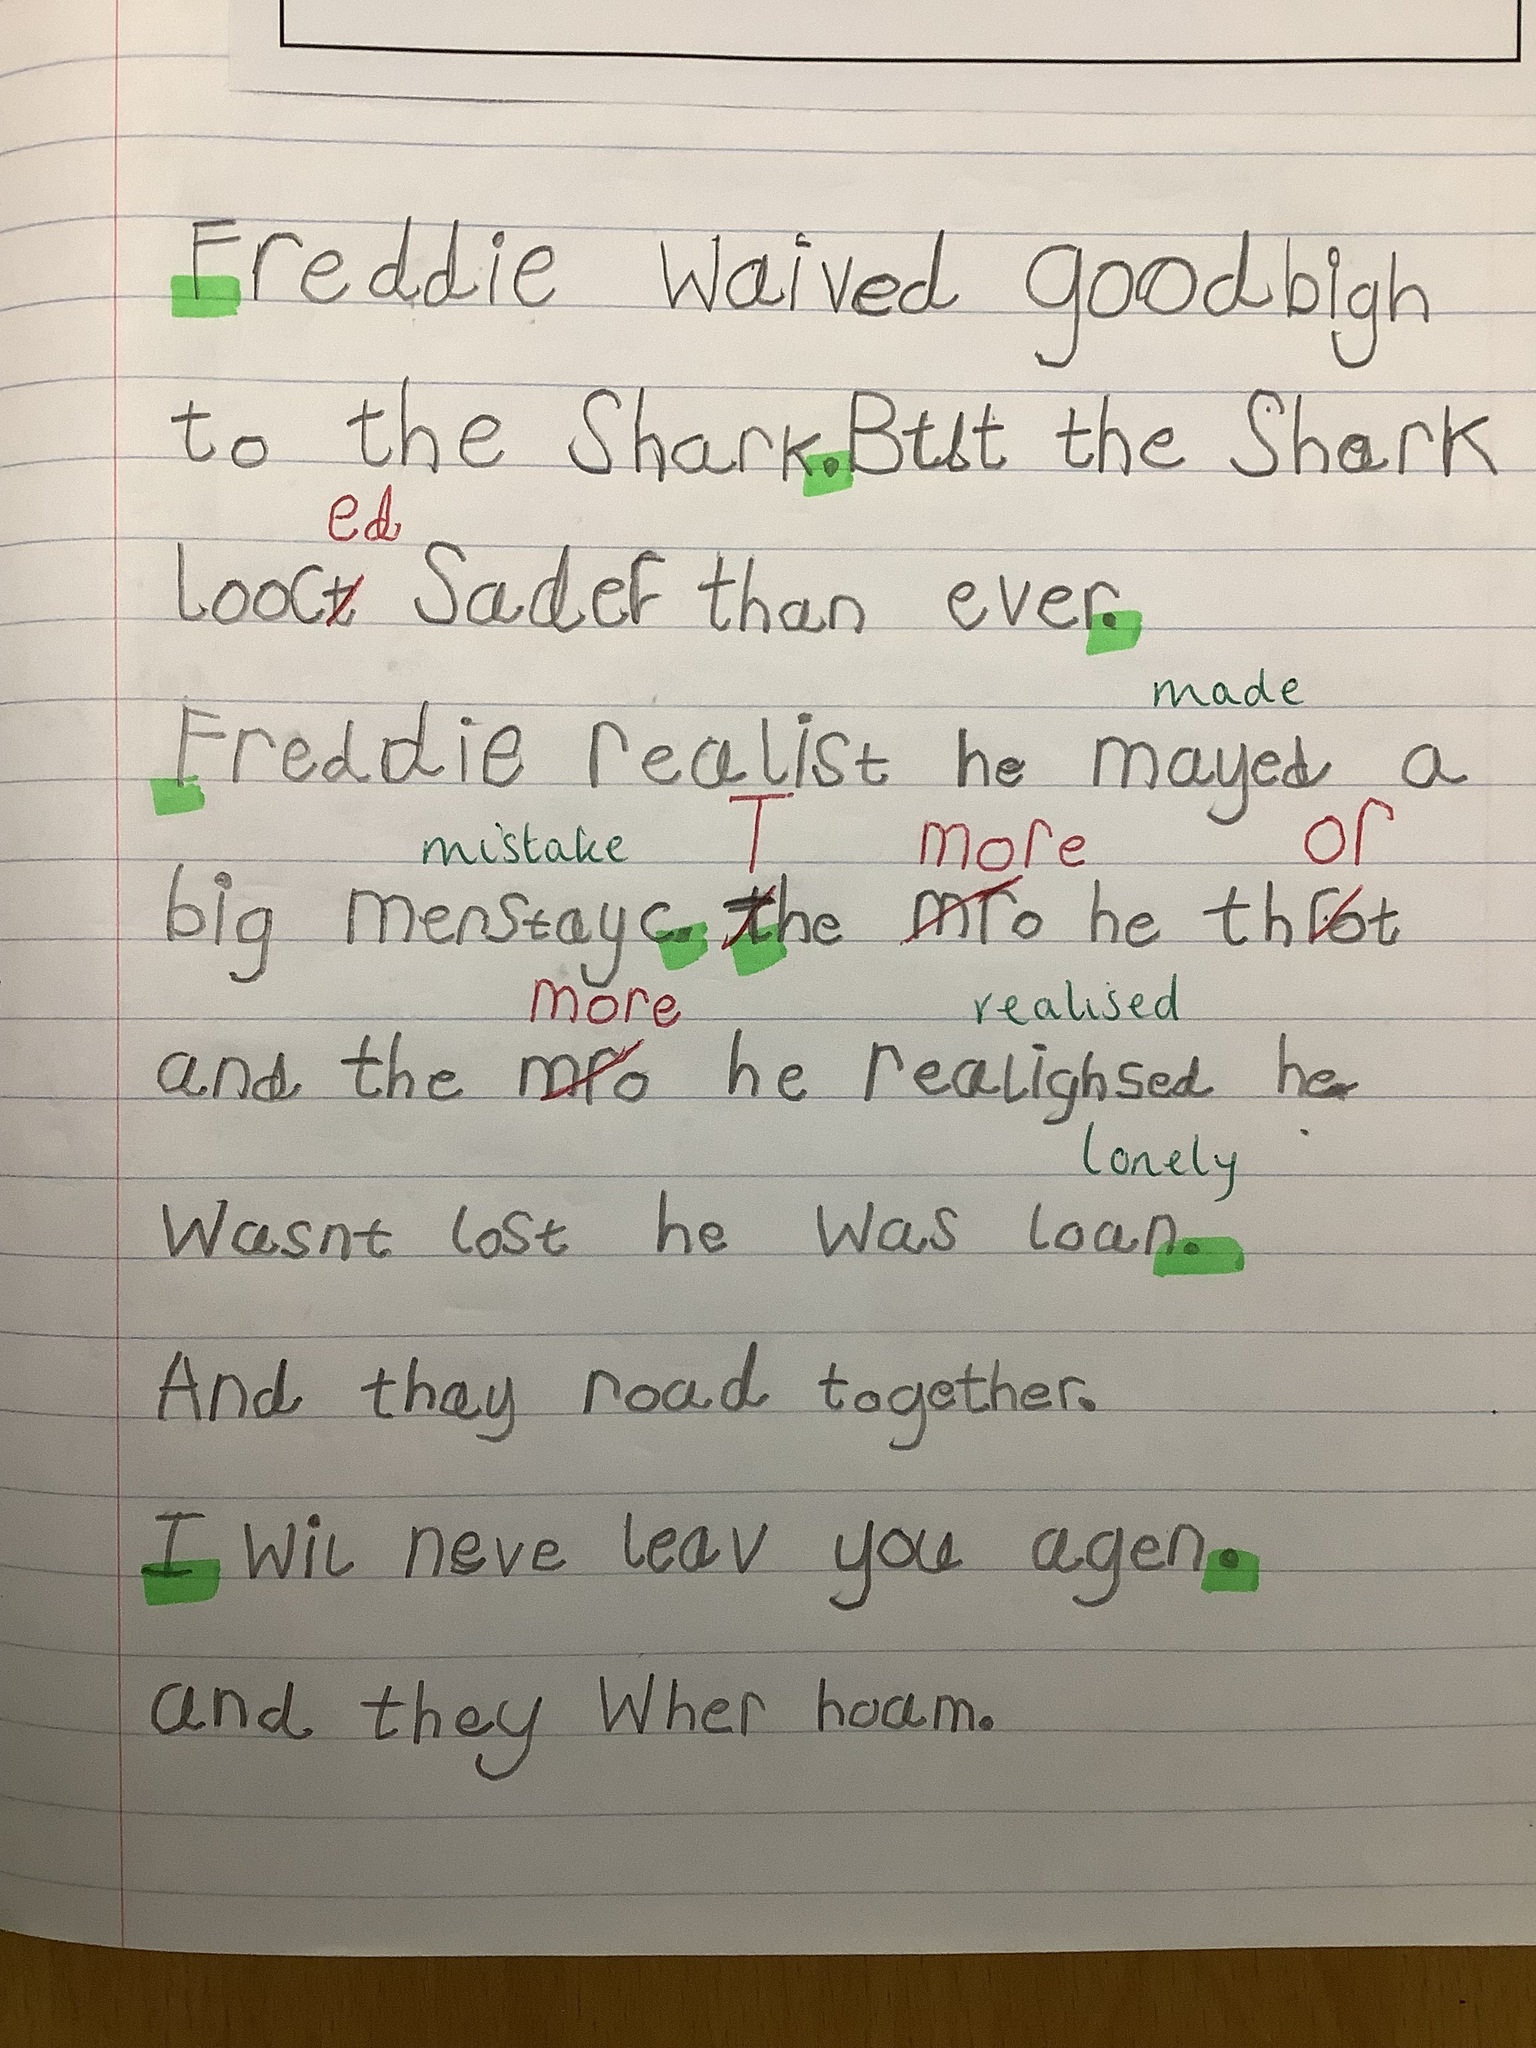 Freddie waived goodbigh
to the Shark. But the Shark
ed
looct Sader than ever.
made
Freddie realist he mayed a
mistake T more or
big menstayc. the mro he throt
more realised
and the mro he realighsed he
lonely
Wasnt lost he was loan.
And they road together.
I wil neve leav you agen.
and they Wher hoam.